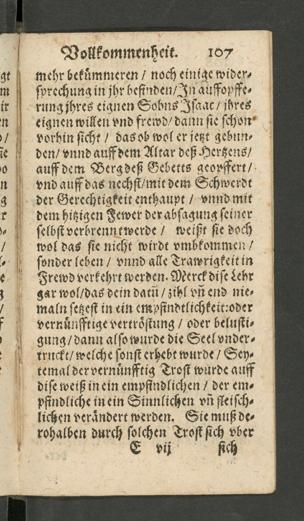 Vollkommenheit. 107
mehr bekümmeren / noch einige wider-
sprechung in jhr befinden / Jn auffopffe-
rung jhres eignen Sohns Isaac / jhres
eignen willen vnd frewd / dann sie schon
vorhin sicht / das ob wol er jetzt gebun-
den / vnnd auff dem Altar deß Hertzens /
auff dem Berg deß Gebetts geopffert /
vnd auff das nechst / mit dem Schwerdt
der Gerechtigkeit enthaupt / vnnd mit
dem hitzigen Fewer der absagung seiner
selbst verbrennt werde / weißt sie doch
wol das sie nicht wirdt vmbkommen /
sonder leben / vnnd alle Trawrigkeit in
Frewd verkehrt werden. Merck dise Lehr
gar wol / das dein datū / zihl vñ end nie-
maln setzest in ein empfindtlichkeit: oder
vernünfftige vertröstung / oder belusti-
gung / dann also wurde die Seel vnder-
truckt / welche sonst erhebt wurde / Sey-
temal der vernünfftig Trost wurde auff
dise weiß in ein empfindlichen / der em-
pfindliche in ein Sinnlichen vñ fleisch-
lichen verändert werden. Sie muß de-
rohalben durch solchen Trost sich vber
E vij sich